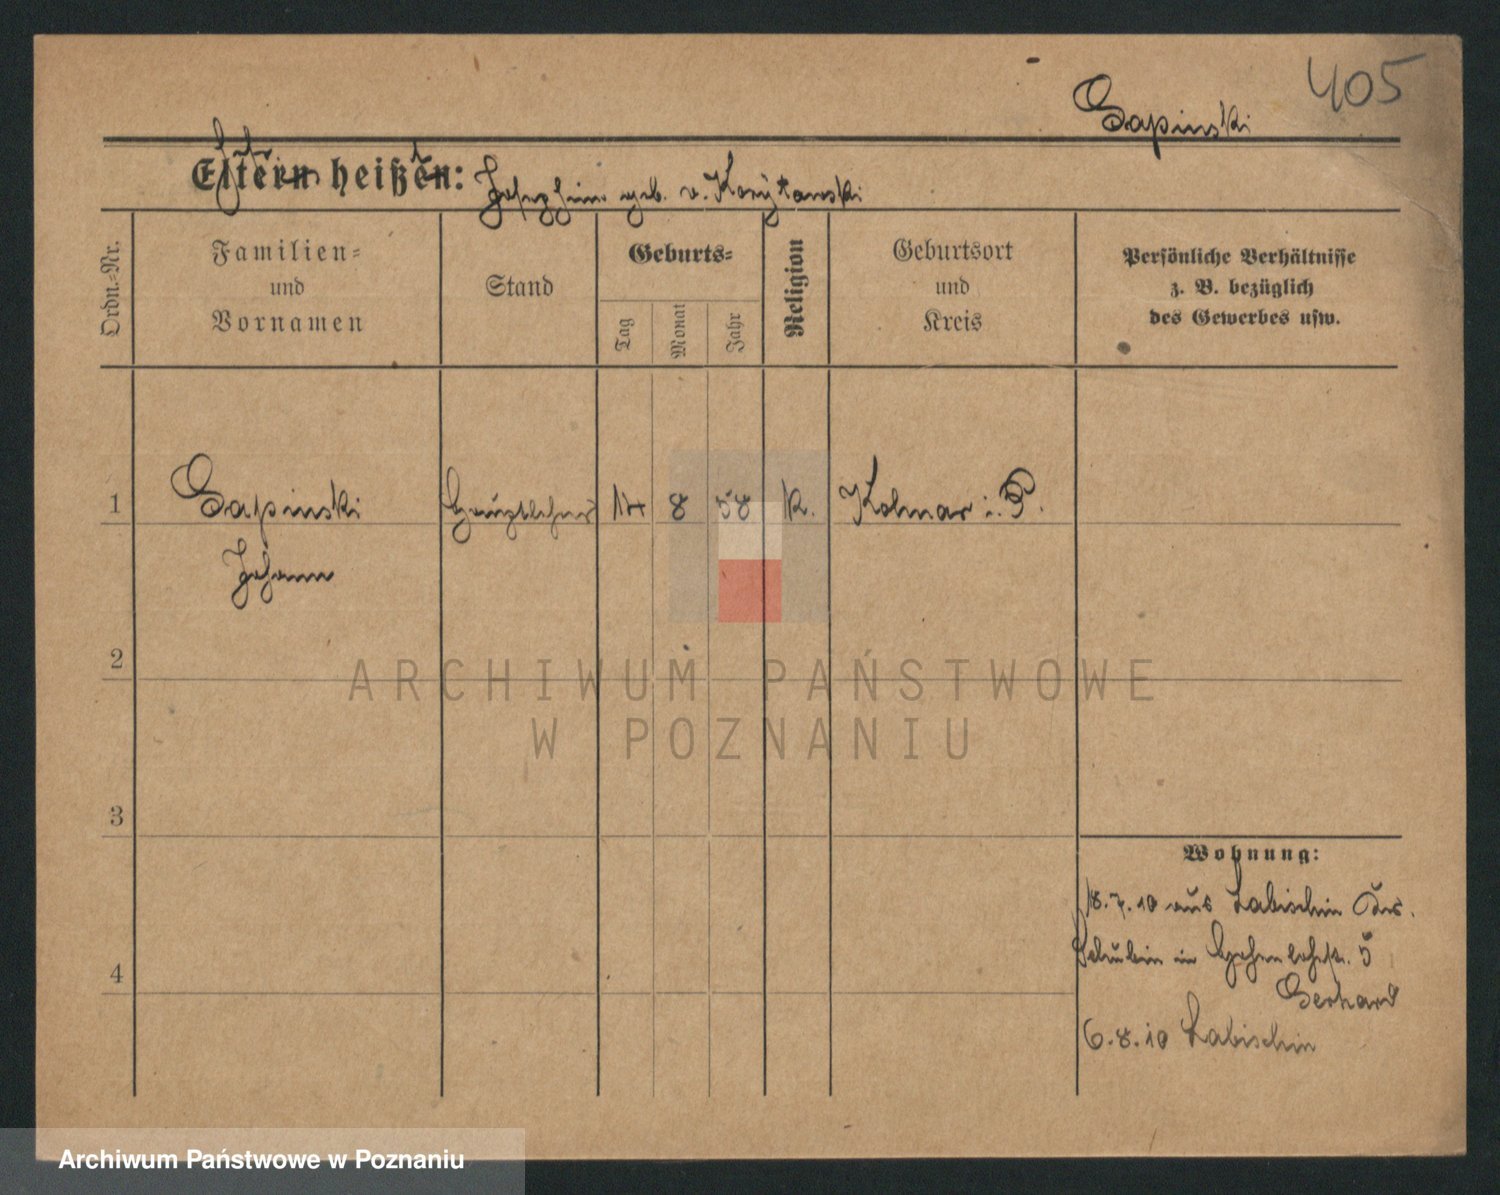 405
Gapinski
Eltern heißen: Josephine geb. v. Korytowski
Ordn.-Nr.
Familien=
und
Vornamen
Stand
Geburts=
Tag
Monat
Jahr
Religion
Geburtsort
und
Kreis
Persönliche Verhältnisse
z. B. bezüglich
des Gewerbes usw.
1 Gapinski Hauptlehrer 17 8 58 k. Kolmar i. P.
Johann
2
3
4
Wohnung:
18.7.10 aus Labischin Krs.
Schubin in Hohenlohestr. 5
Gerhard
6.8.10 Labischin
ARCHIWUM PAŃSTWOWE
W POZNANIU
Archiwum Państwowe w Poznaniu